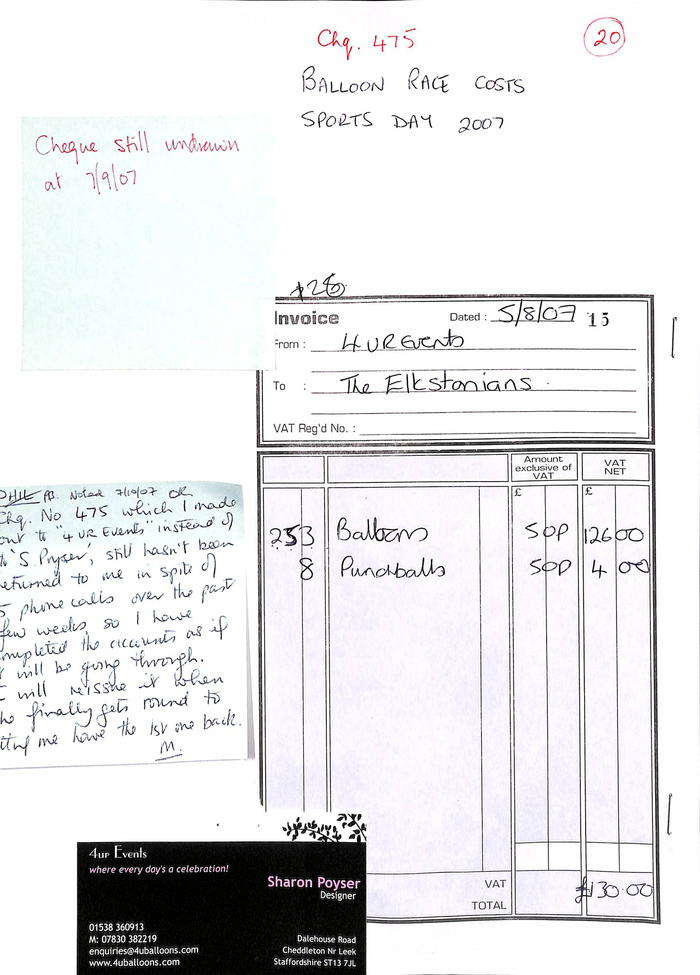 Chq. 475
20
BALLOON RACE COSTS
SPORTS DAY 2007
Cheque still undrawn
at 7/9/07
Invoice
Dated : 5/8/07 15
From : 4 UR Events
To : The Elkstonians.
VAT Reg'd No. :
Amount exclusive of VAT
VAT NET
£ £
253 Balloons 50P 126 00
8 Punchballs 50P 4 00
VAT
TOTAL
£130.00
PHIL Noted 7/10/07
Chq. No 475 which I made
out to "4 UR Events" instead of
to 'S. Poyser', still hasn't been
returned to me in spite of
5 phone calls over the past
few weeks, so I have
completed the accounts as if
it will be going through.
I will reissue it when
she finally gets round to
letting me have the 1st one back.
M.
4ur Events
where every day's a celebration!
Sharon Poyser
Designer
01538 360913
M: 07830 382219
enquiries@4uballoons.com
www.4uballoons.com
Dalehouse Road
Cheddleton Nr Leek
Staffordshire ST13 7JL